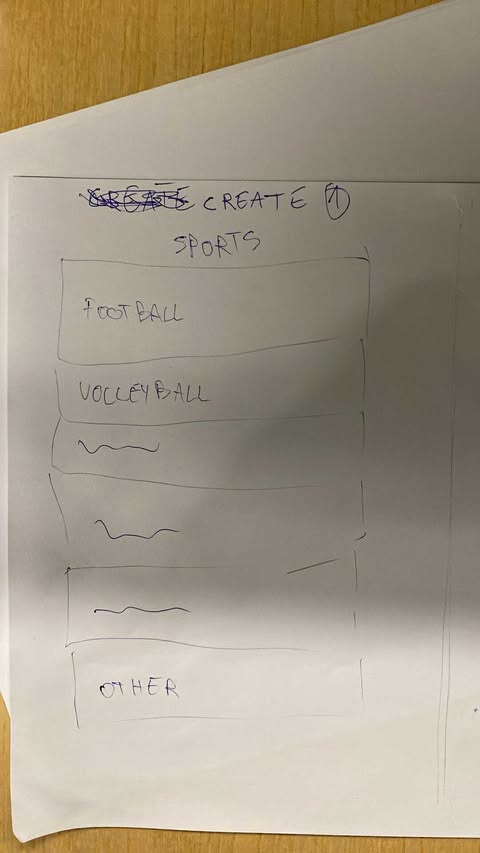 CREATE CREATE 1
SPORTS
FOOTBALL
VOLLEYBALL
OTHER